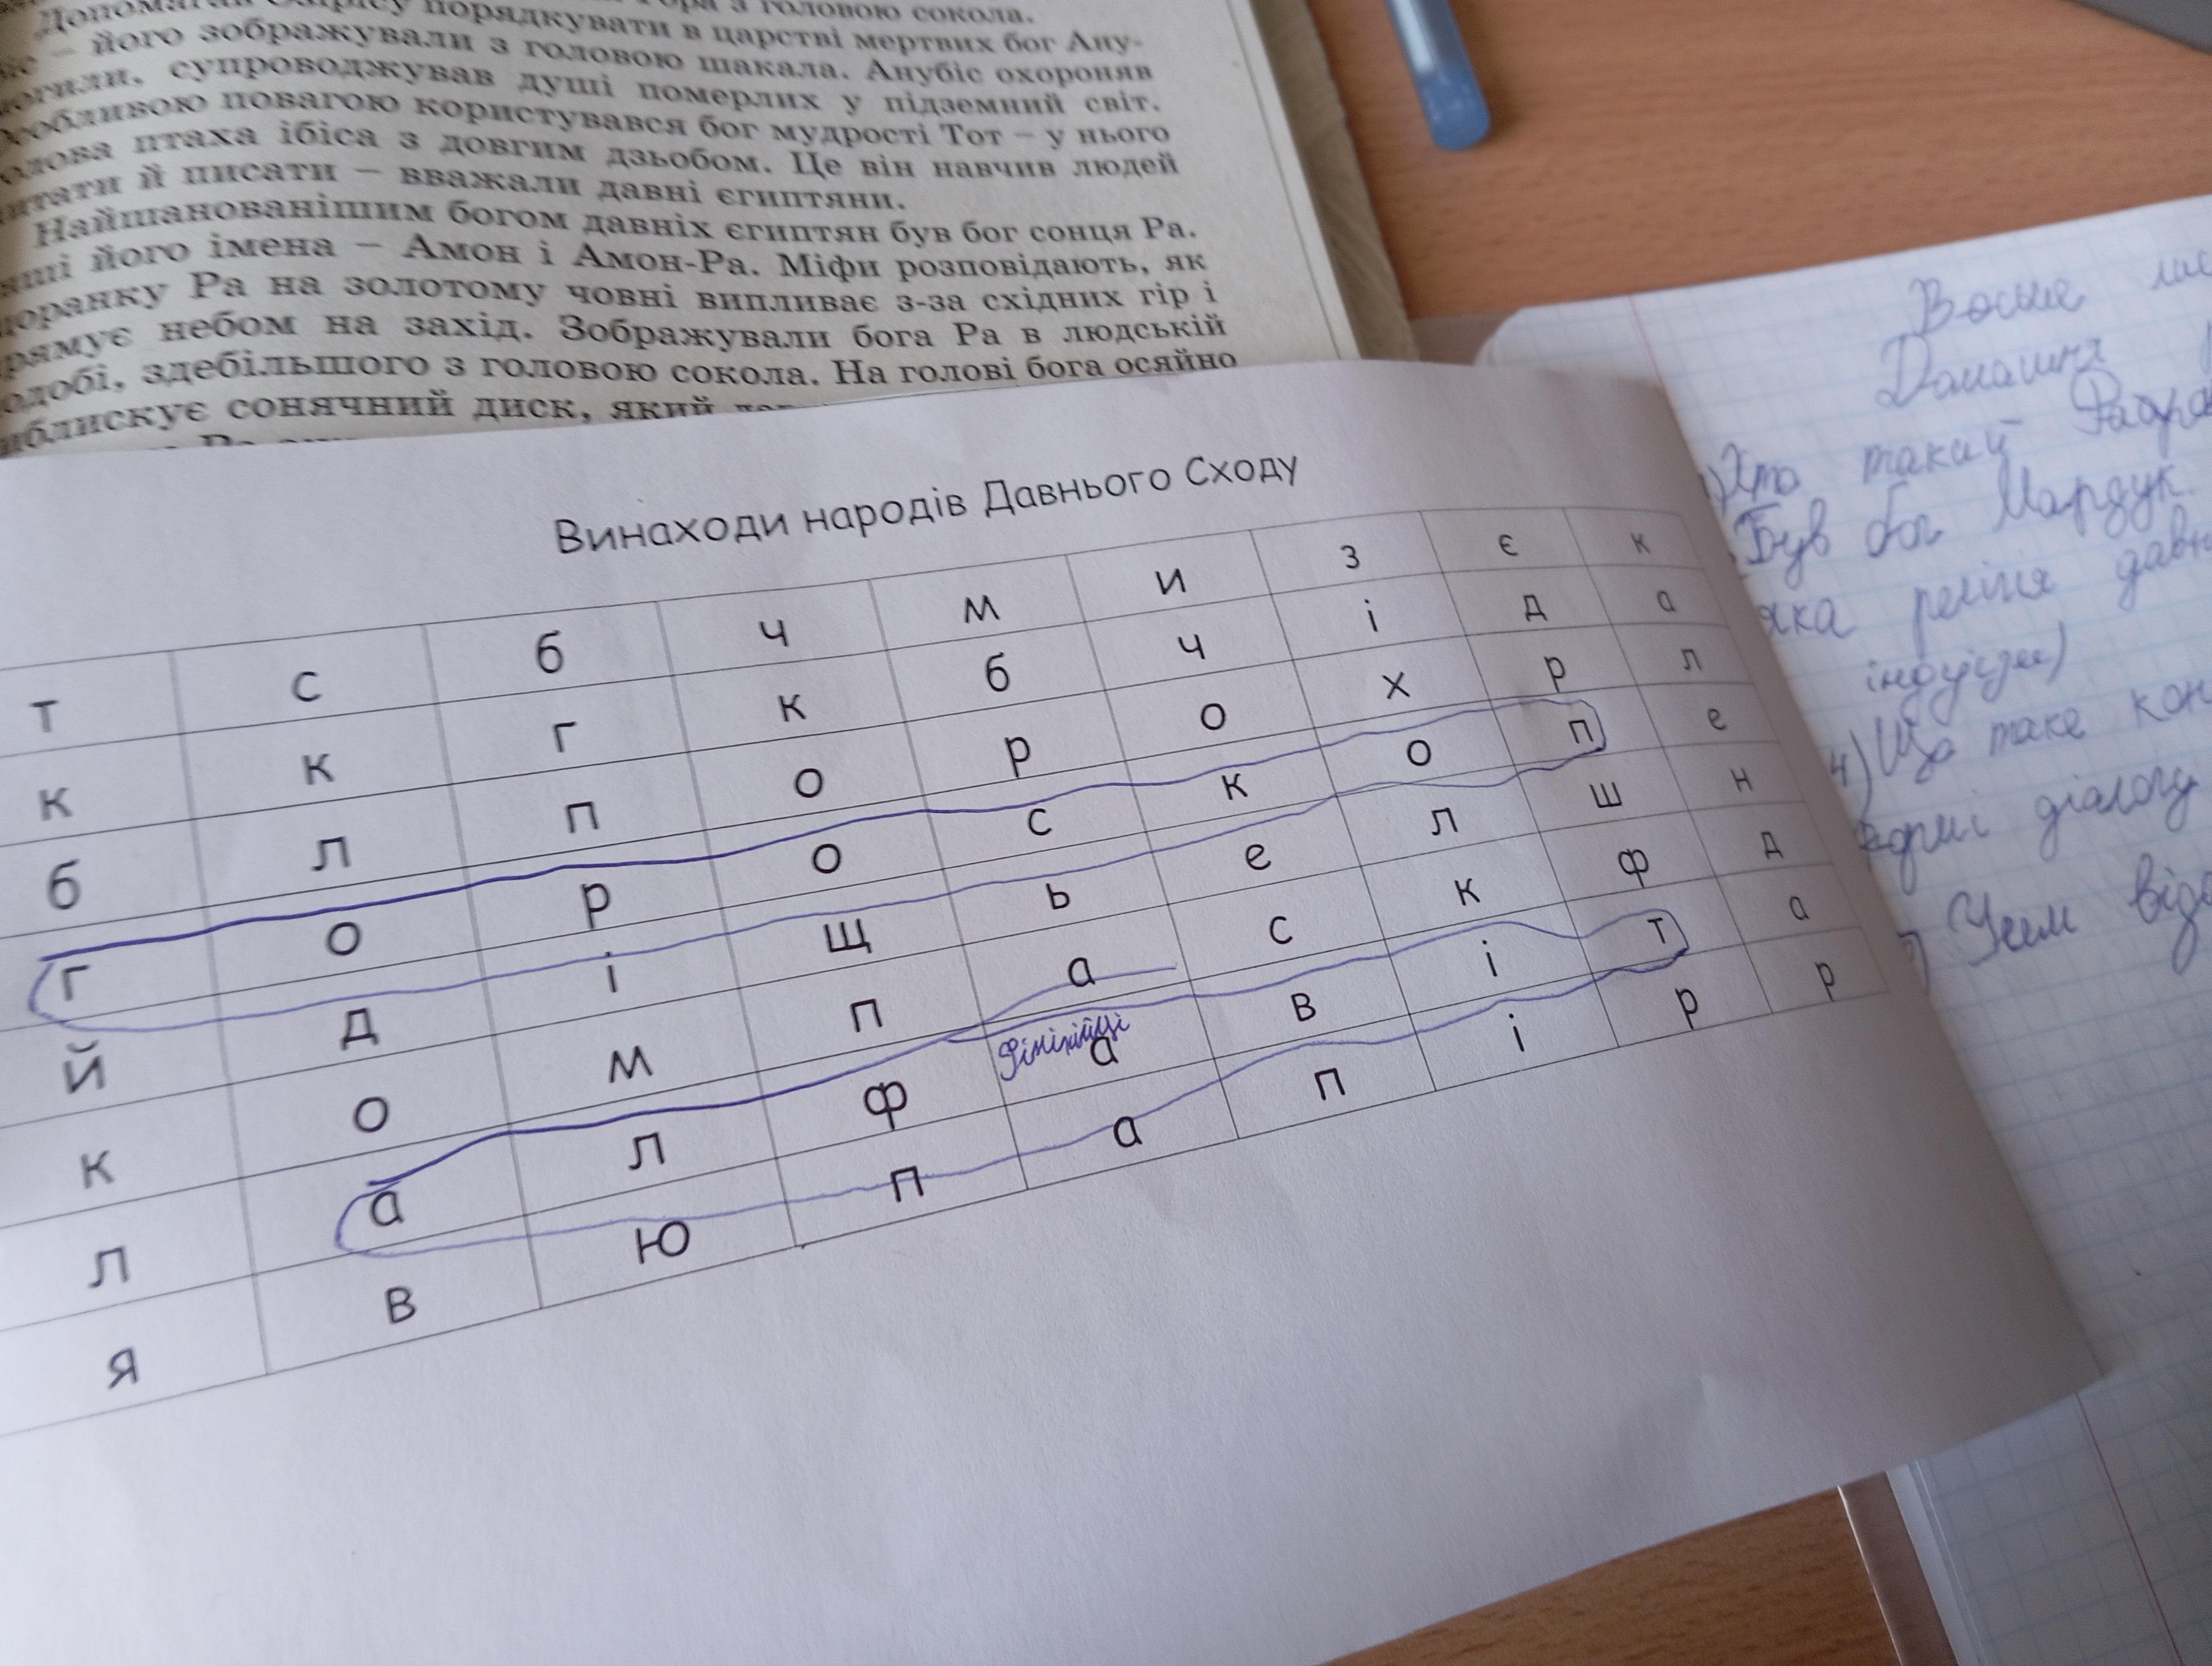 з головою сокола.
Допомагав Озірісу порядкувати в царстві мертвих бог Ану-
– його зображували з головою шакала. Анубіс охороняв
огили, супроводжував душі померлих у підземний світ.
собливою повагою користувався бог мудрості Тот – у нього
олова птаха ібіса з довгим дзьобом. Це він навчив людей
итати й писати – вважали давні єгиптяни.
Найшанованішим богом давніх єгиптян був бог сонця Ра.
нші його імена – Амон і Амон-Ра. Міфи розповідають, як
оранку Ра на золотому човні випливає з-за східних гір і
рямує небом на захід. Зображували бога Ра в людській
одобі, здебільшого з головою сокола. На голові бога осяйно
иблискує сонячний диск, який
Винаходи народів Давнього Сходу
т с б ч м и з є к
к к г к б ч і д а
б л п о р о х р л
г о р о с к о п е
й д і щ ь е л ш н
к о м п а с к ф д
фінікійці
л а л ф а в і т а
я в ю п а п і р р
Восьме
Домашня
Хто такий
Був бог Мардук.
яка релігія давн
індуїзм)
4) Що таке кон
формі діалогу
Чим